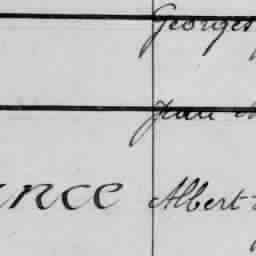 Georges
Jean
ance Albert